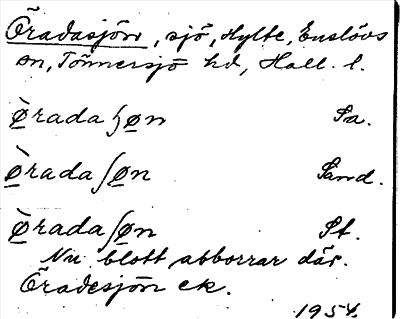 Öradasjön, sjö, Hylte, Enslövs
sn, Tönnersjö hd, Hall. l.
ø̀rada ʃøn Sa.
ø̀rada ʃøn Sand.
ø̀rada ʃøn St.
Nu blott abborrar där.
Öradesjön ek.
1954.